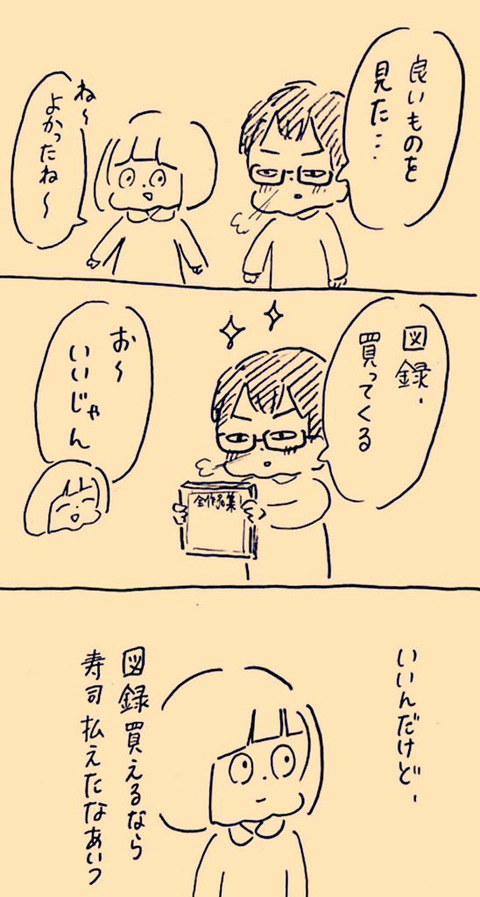 良いものを
見た…
ね〜
よかったね〜
図録、
買ってくる
全作品集
お〜
いいじゃん
いいんだけど、
図録買えるなら
寿司払えたなあいつ